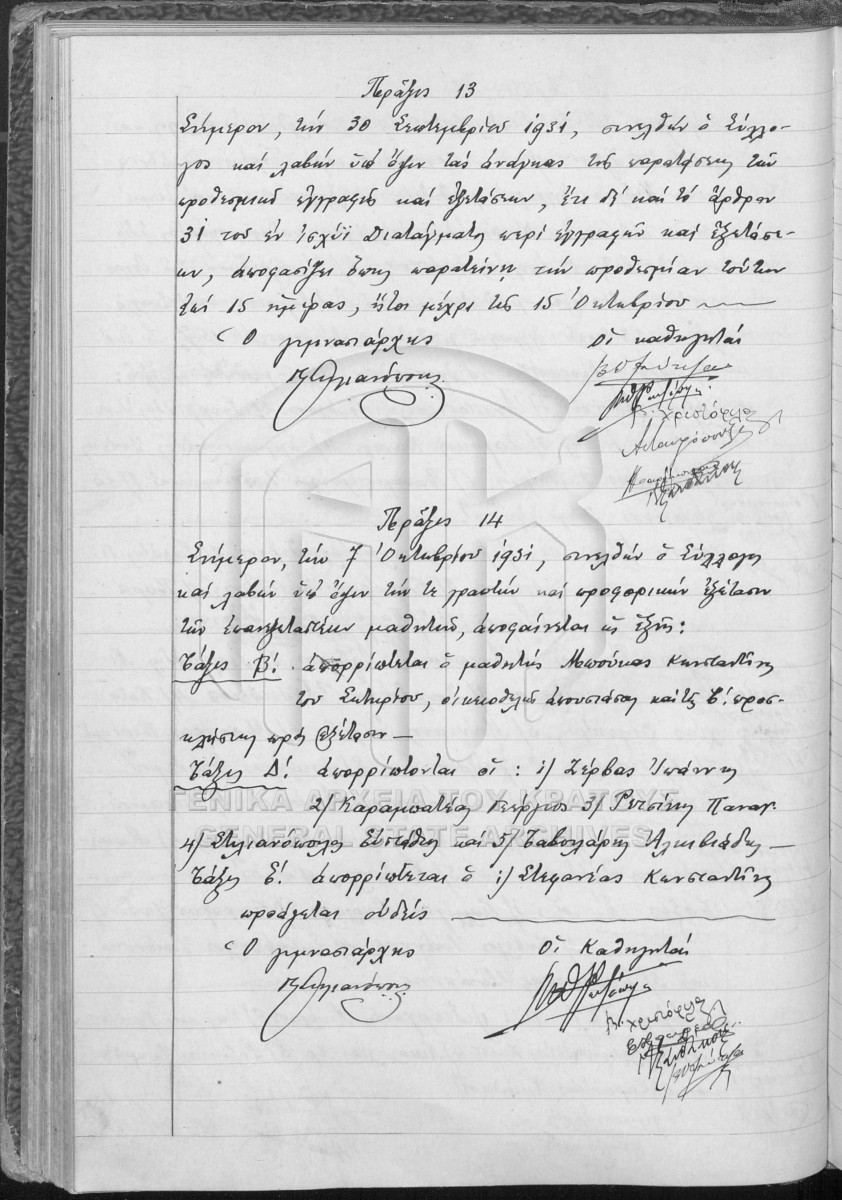 Πρᾶξις 13
Σήμερον, τὴν 30 Σεπτεμβρίου 1931, συνελθὼν ὁ Σύλλο-
γος καὶ λαβὼν ὑπ' ὄψιν τὰς ἀνάγκας τῆς παρατάσεως τῶν
προθεσμιῶν ἐγγραφῆς καὶ ἐξετάσεων, ἔτι δὲ καὶ τὸ ἄρθρον
31 τοῦ ἐν ἰσχύϊ Διατάγματος περὶ ἐγγραφῶν καὶ ἐξετάσε-
ων, ἀποφασίζει ὅπως παρατείνῃ τὴν προθεσμίαν τούτων
ἐπὶ 15 ἡμέρας, ἤτοι μέχρι τῆς 15 Ὀκτωβρίου
Ὁ γυμνασιάρχης Οἱ καθηγηταί
Β. Χριστόφιλ
Πρᾶξις 14
Σήμερον, τὴν 7 Ὀκτωβρίου 1931, συνελθὼν ὁ Σύλλογος
καὶ λαβὼν ὑπ' ὄψιν τήν τε γραπτὴν καὶ προφορικὴν ἐξέτασιν
τῶν ἐπανεξεταστέων μαθητῶν, ἀποφαίνεται ὡς ἑξῆς:
Τάξις Β! ἀπορρίπτεται ὁ μαθητὴς Μπούκας Κωνσταντῖνος
τοῦ Σωτηρίου, οἰκειοθελῶς ἀπουσιάσας καὶ τῆς Β! προσ-
κλήσεως πρὸς ἐξέτασιν —
Τάξις Δ! ἀπορρίπτονται οἱ: 1) Ζέρβας Ἰωάννης
2) Καραμπατέας Γεώργιος 3) Ρετσίνης Παναγ.
4) Στυλιανόπουλος Εὐστάθιος καὶ 5) Ταβουλάρης Ἀλκιβιάδης —
Τάξις Ϛ! ἀπορρίπτεται ὁ 1) Στεφανέας Κωνσταντῖνος
προάγεται οὐδείς
Ὁ γυμνασιάρχης Οἱ Καθηγηταί
Β. Χριστόφιλ
ΓΕΝΙΚΑ ΑΡΧΕΙΑ ΤΟΥ ΚΡΑΤΟΥΣ
GENERAL STATE ARCHIVES